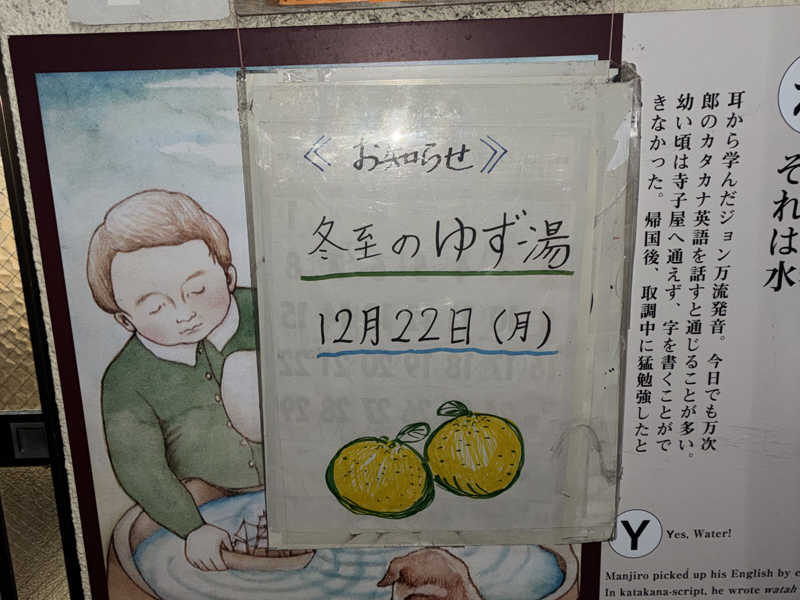 《お知らせ》
冬至のゆず湯
12月22日(月)
それは水
耳から学んだジョン万流発音。今日でも万次
郎のカタカナ英語を話すと通じることが多い。
幼い頃は寺子屋へ通えず、字を書くことがで
きなかった。帰国後、取調中に猛勉強したと
Y
Yes, Water!
Manjiro picked up his English by
In katakana-script, he wrote watah